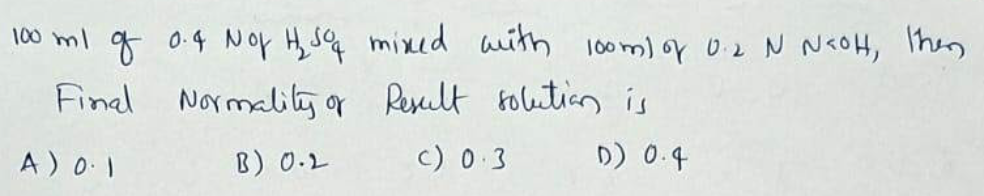 100 ml of 0.4 N of H₂SO₄ mixed with 100ml of 0.2 N NaOH, then
Final Normality of Result solution is
A) 0.1 B) 0.2 C) 0.3 D) 0.4